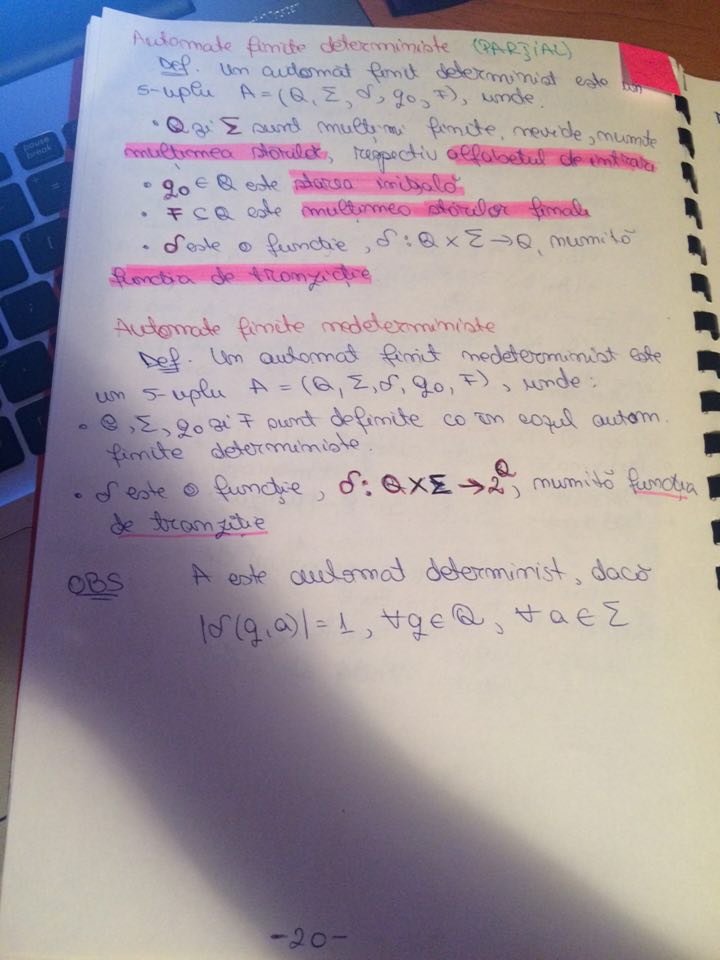 Automate finite deterministe (PARȚIAL)
Def. Un automat finit determinist este un
5-uplu A = (Q, Σ, δ, q0, F), unde.
• Q și Σ sunt mulțimi finite, nevide, numite
mulțimea stărilor, respectiv alfabetul de intrare
• q0 ∈ Q este starea inițială
• F ⊆ Q este mulțimea stărilor finale
• δ este o funcție, δ : Q × Σ → Q, numită
funcția de tranziție.
Automate finite nedeterministe
Def. Un automat finit nedeterminist este
un 5-uplu A = (Q, Σ, δ, q0, F), unde:
• Q, Σ, q0 și F sunt definite ca în cazul autom.
finite deterministe.
• δ este o funcție, δ: Q × Σ → 2^Q, numită funcția
de tranziție
OBS A este automat determinist, dacă
|δ(q,a)| = 1, ∀q ∈ Q, ∀ a ∈ Σ
-20-
pause
break